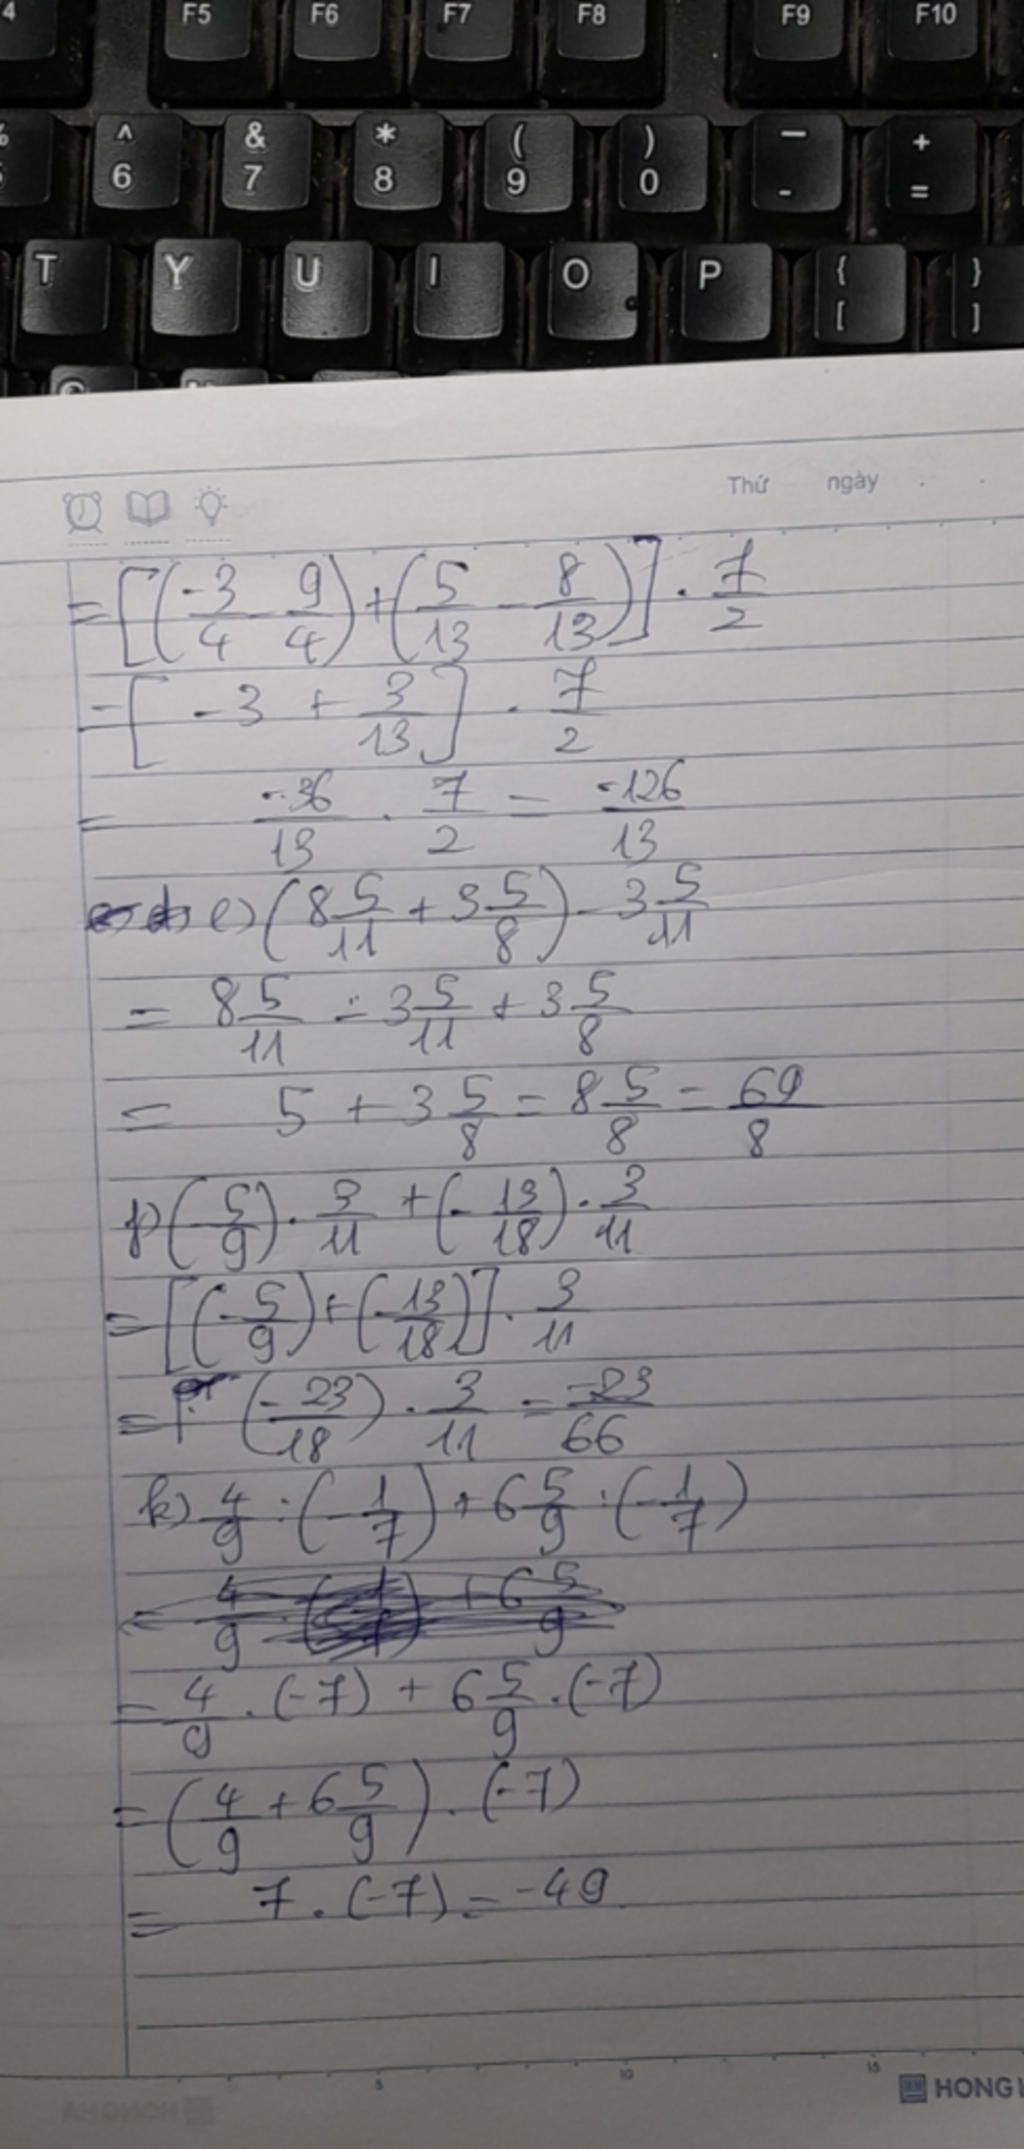 4 F5 F6 F7 F8 F9 F10
% ^ & * ( ) — +
5 6 7 8 9 0 - =
T Y U I O P { }
[ ]
Thứ ngày
= [(-3/4 - 9/4) + (5/13 - 8/13)] . 7/2
= [ -3 + 3/13 ] . 7/2
= -36/13 . 7/2 = -126/13
e) (8 5/11 + 3 5/8) - 3 5/11
= 8 5/11 - 3 5/11 + 3 5/8
= 5 + 3 5/8 = 8 5/8 = 69/8
f) (-5/9) . 3/11 + (-13/18) . 3/11
= [(-5/9) + (-13/18)] . 3/11
= (-23/18) . 3/11 = -23/66
k) 4/9 : (-1/7) + 6 5/9 : (-1/7)
= 4/9 . (-7) + 6 5/9 . (-7)
= (4/9 + 6 5/9) . (-7)
= 7 . (-7) = -49
5 10 15
HONG